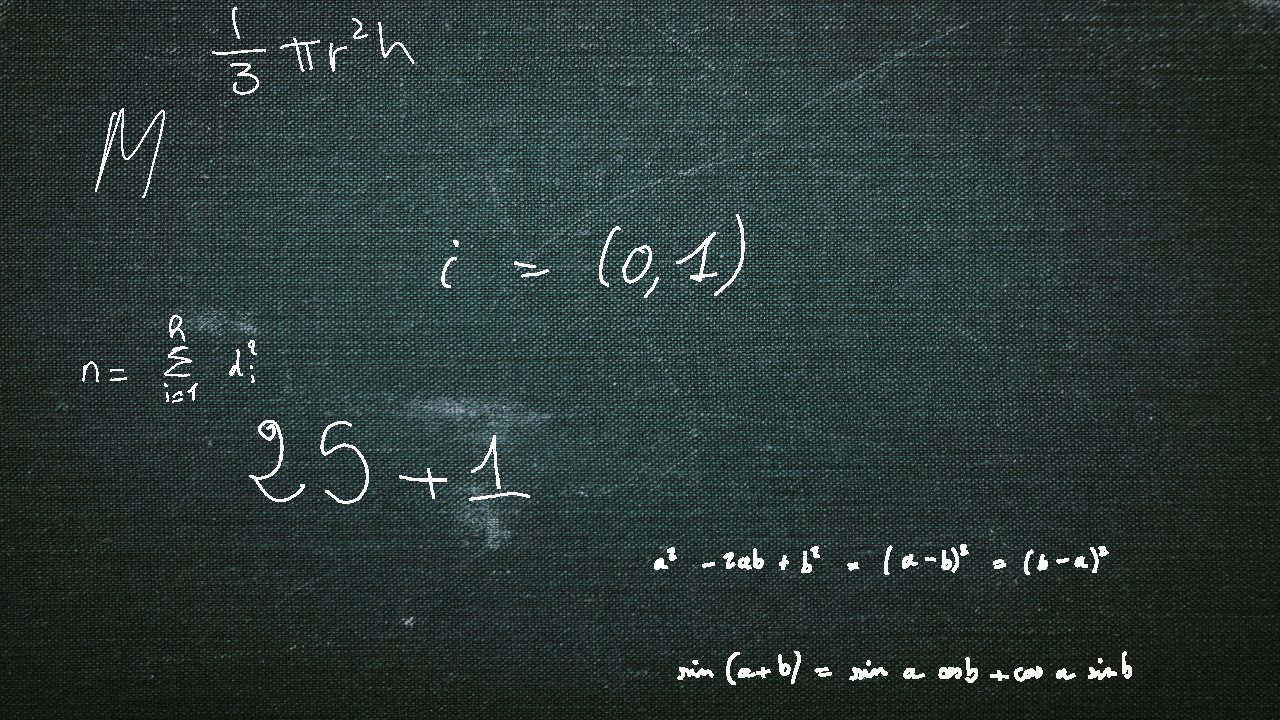 1/3 πr²h
M
i = (0,1)
n = Σ_{i=1}^{R} d_i²
25 + 1
a² - 2ab + b² = (a-b)² = (b-a)²
sin (a+b) = sin a cos b + cos a sin b